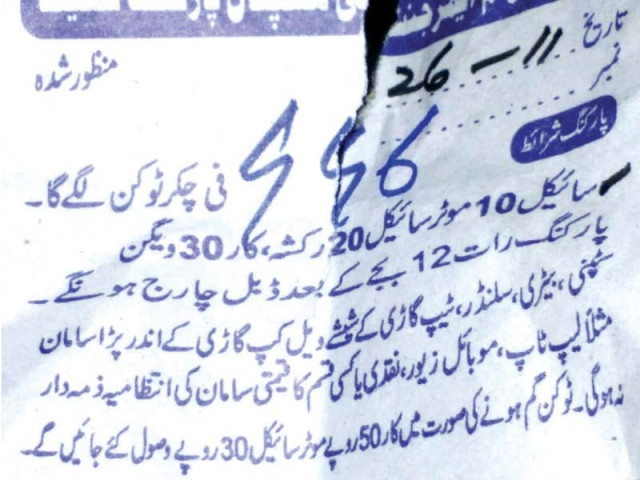 تاریخ 26 - 11
نمبر
منظور شدہ
پارکنگ شرائط
فی چکر ٹوکن لگے گا۔
سائیکل 10 موٹر سائیکل 20 رکشہ، کار 30 ویگن
پارکنگ رات 12 بجے کے بعد ڈبل چارج ہونگے۔
سٹپنی، بیٹری، سلنڈر، ٹیپ گاڑی کے شیشے ویل کپ گاڑی کے اندر پڑا سامان
مثلاً لیپ ٹاپ، موبائل زیور، نقدی یا کسی قسم کا قیمتی سامان کی انتظامیہ ذمہ دار
نہ ہوگی۔ ٹوکن گم ہونے کی صورت میں کار 50 روپے موٹر سائیکل 30 روپے وصول کئے جائیں گے۔